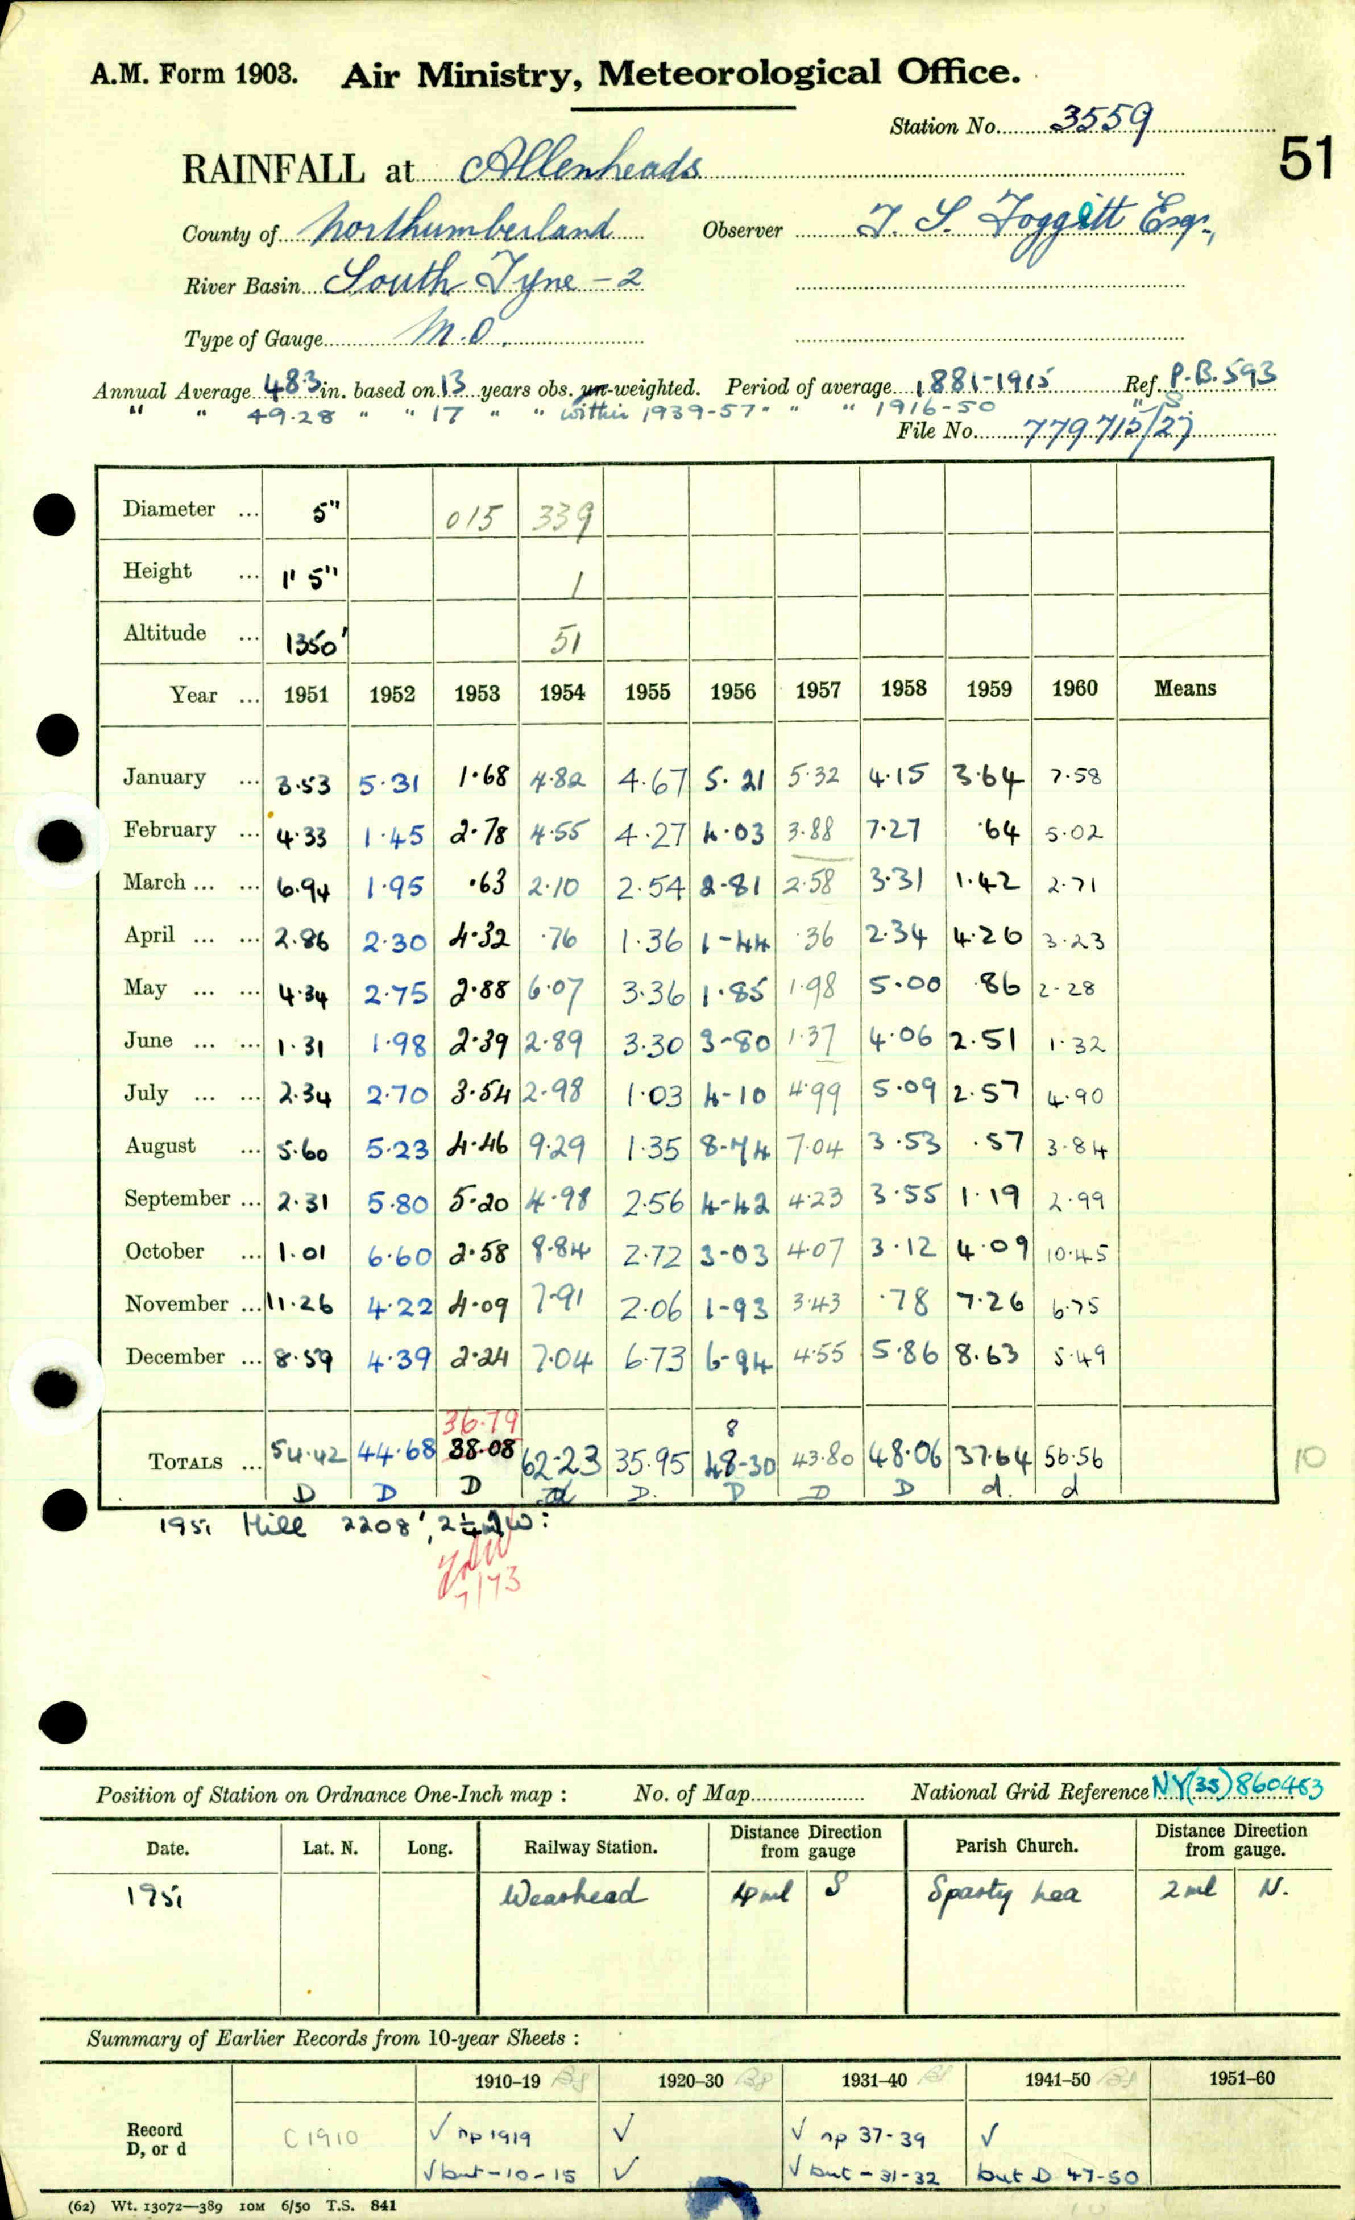 A.M. Form 1903. Air Ministry, Meteorological Office.
Station No. 3559
51
RAINFALL at Allenheads
County of Northumberland Observer T. S. Foggitt Esqr.,
River Basin South Tyne - 2
Type of Gauge M.O.
Annual Average 48.3 in. based on 13 years obs. un-weighted. Period of average 1881-1915 Ref. P.B. 593
" " 49.28 " " 17 " " within 1939-57. " " 1916-50 " S
File No. 779715/27
Diameter ... 5" 015 339
Height ... 1' 5" 1
Altitude ... 1350' 51
Year ... 1951 1952 1953 1954 1955 1956 1957 1958 1959 1960 Means
January ... 3.53 5.31 1.68 4.82 4.67 5.21 5.32 4.15 3.64 7.58
February ... 4.33 1.45 2.78 4.55 4.27 4.03 3.88 7.27 .64 5.02
March ... ... 6.94 1.95 .63 2.10 2.54 2.81 2.58 3.31 1.42 2.71
April ... ... 2.86 2.30 4.32 .76 1.36 1-44 .36 2.34 4.26 3.23
May ... ... 4.34 2.75 2.88 6.07 3.36 1.85 1.98 5.00 .86 2.28
June ... ... 1.31 1.98 2.39 2.89 3.30 3-80 1.37 4.06 2.51 1.32
July ... ... 2.34 2.70 3.54 2.98 1.03 4-10 4.99 5.09 2.57 4.90
August ... 5.60 5.23 4.46 9.29 1.35 8-74 7.04 3.53 .57 3.84
September ... 2.31 5.80 5.20 4.98 2.56 4-42 4.23 3.55 1.19 2.99
October ... 1.01 6.60 2.58 8.84 2.72 3-03 4.07 3.12 4.09 10.45
November ... 11.26 4.22 4.09 7.91 2.06 1-93 3.43 .78 7.26 6.75
December ... 8.59 4.39 2.24 7.04 6.73 6-94 4.55 5.86 8.63 5.49
36.79 8
TOTALS ... 54.42 44.68 38.08 62.23 35.95 48-30 43.80 48.06 37.64 56.56 10
D D D d D. D D D d. d
1951 Hill 2208', 2¼ W:
7/73
Position of Station on Ordnance One-Inch map : No. of Map National Grid Reference NY(35)860453
Date. Lat. N. Long. Railway Station. Distance Direction from gauge Parish Church. Distance Direction from gauge.
1951 Wearhead 4 ml S Sparty Lea 2 ml N.
Summary of Earlier Records from 10-year Sheets :
1910–19 1920–30 1931–40 1941–50 1951–60
Record D, or d C 1910 √ np 1919 √ √ np 37-39 √
√ but -10-15 √ √ but -31-32 but D 47-50
(62) Wt. 13072—389 10M 6/50 T.S. 841